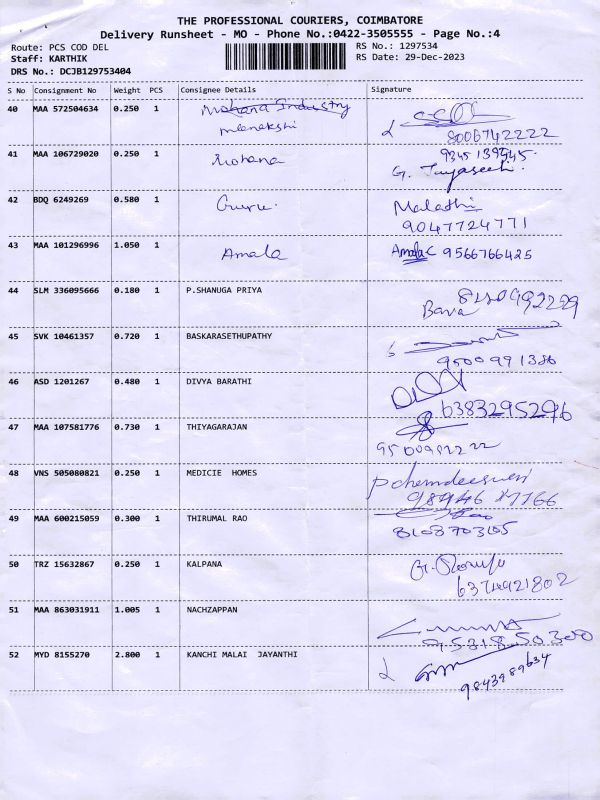 THE PROFESSIONAL COURIERS, COIMBATORE
Delivery Runsheet - MO - Phone No.:0422-3505555 - Page No.:4
Route: PCS COD DEL
Staff: KARTHIK
DRS No.: DCJB129753404
RS No.: 1297534
RS Date: 29-Dec-2023
S No Consignment No Weight PCS Consignee Details Signature
40 MAA 572504634 0.250 1 Mohana Industry
meenakshi
8006742222
41 MAA 106729020 0.250 1 Mohana
G. Jayaseeli.
42 BDQ 6249269 0.580 1 Guru. Malathi
9047724771
43 MAA 101296996 1.050 1 Amala Amala C 9566766425
44 SLM 336095666 0.180 1 P.SHANUGA PRIYA
Bava
45 SVK 10461357 0.720 1 BASKARASETHUPATHY
9500991386
46 ASD 1201267 0.480 1 DIVYA BARATHI
6383295296
47 MAA 107581776 0.730 1 THIYAGARAJAN
48 VNS 505080821 0.250 1 MEDICIE HOMES
49 MAA 600215059 0.300 1 THIRUMAL RAO
50 TRZ 15632867 0.250 1 KALPANA
6374921802
51 MAA 863031911 1.005 1 NACHZAPPAN
9531850300
52 MYD 8155270 2.800 1 KANCHI MALAI JAYANTHI
9843989634